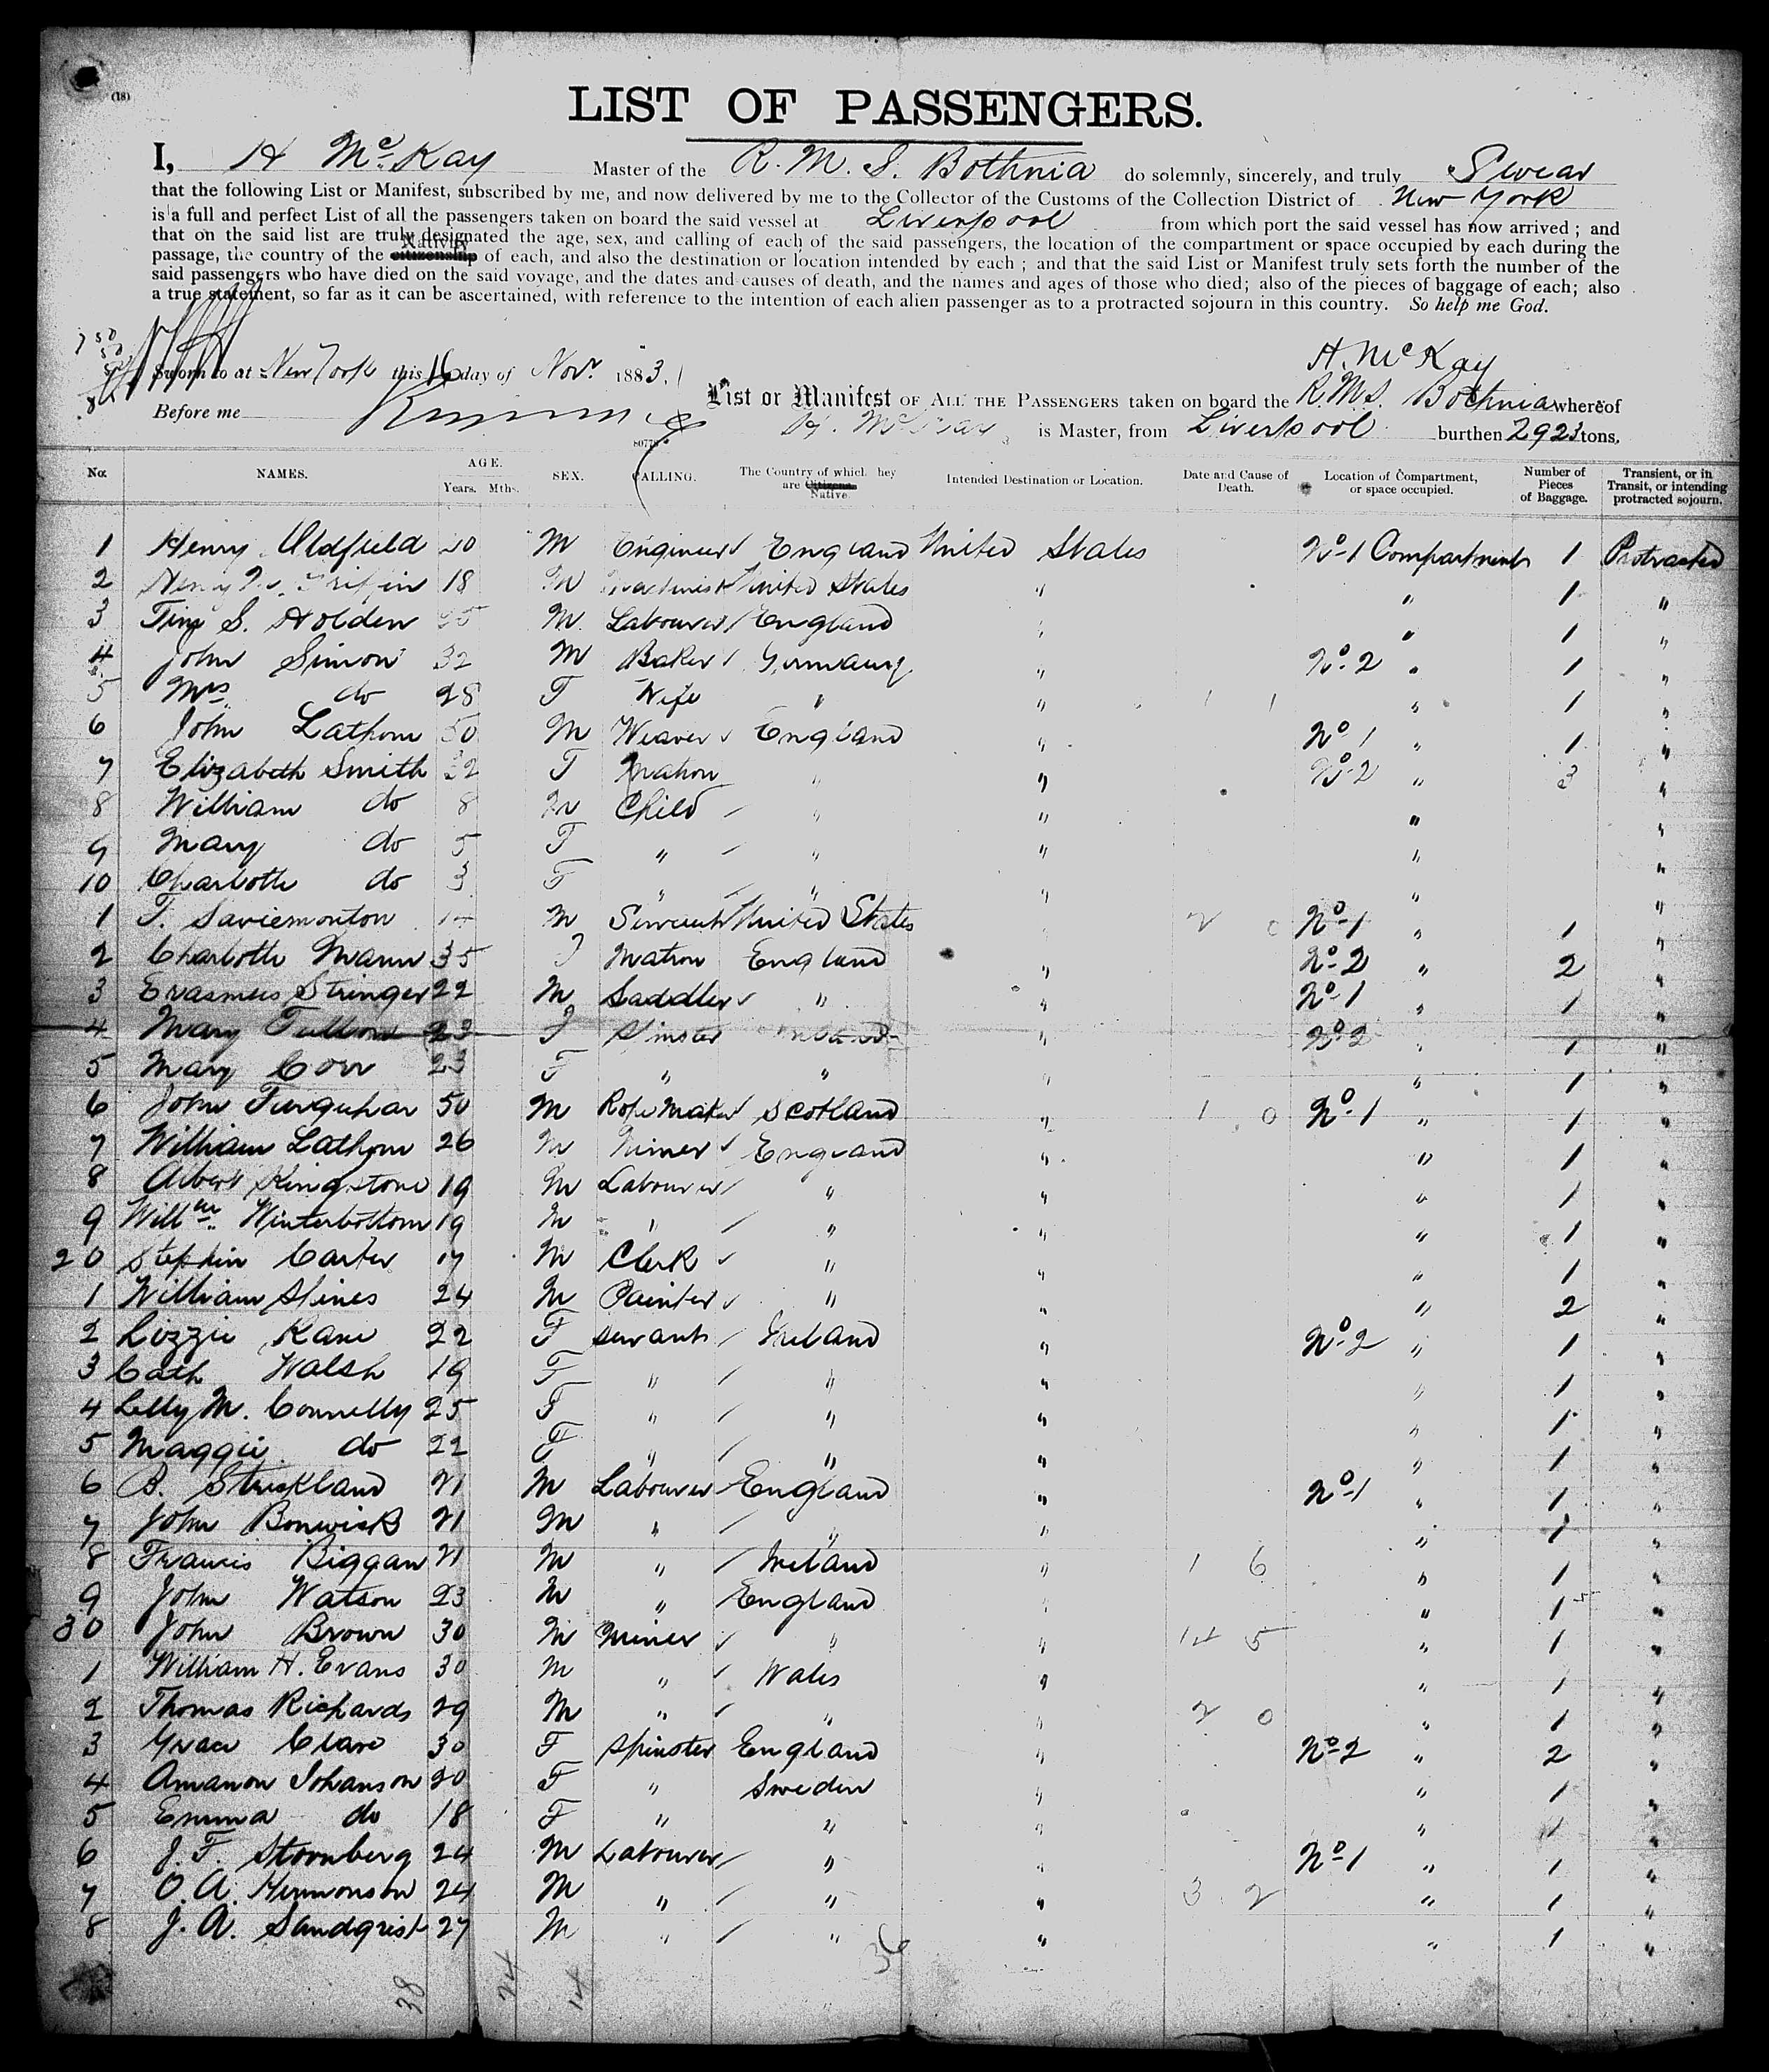 (18)
LIST OF PASSENGERS.
I, H McKay Master of the R. M. S. Bothnia do solemnly, sincerely, and truly Swear
that the following List or Manifest, subscribed by me, and now delivered by me to the Collector of the Customs of the Collection District of New York
is a full and perfect List of all the passengers taken on board the said vessel at Liverpool from which port the said vessel has now arrived ; and
that on the said list are truly designated the age, sex, and calling of each of the said passengers, the location of the compartment or space occupied by each during the
Nativity
passage, the country of the citizenship of each, and also the destination or location intended by each ; and that the said List or Manifest truly sets forth the number of the
said passengers who have died on the said voyage, and the dates and causes of death, and the names and ages of those who died; also of the pieces of baggage of each; also
a true statement, so far as it can be ascertained, with reference to the intention of each alien passenger as to a protracted sojourn in this country. So help me God.
H. McKay
Sworn to at New York this 16 day of Novr. 1883.
List or Manifest OF ALL THE PASSENGERS taken on board the R.M.S. Bothnia whereof
Before me
H. McKay is Master, from Liverpool burthen 2923 tons.
No. NAMES. AGE. Years. Mths. SEX. CALLING. The Country of which they are Citizens. Native. Intended Destination or Location. Date and Cause of Death. Location of Compartment, or space occupied. Number of Pieces of Baggage. Transient, or in Transit, or intending protracted sojourn.
1 Henry Oldfield 20 M Engineer England United States No 1 Compartment 1 Protracted
2 Henry Griffin 18 M Machinist United States " " 1 "
3 Tim S. Holden M Labourer England " " 1 "
4 John Simon 32 M Baker Germany " No 2 " 1 "
5 Mrs do 28 F Wife " " 1 1 " 1 "
6 John Lathom 50 M Weaver England " No 1 " 1 "
7 Elizabeth Smith 32 F Matron " " No 2 " 3 "
8 William do 8 M Child " " " "
9 Mary do 5 F " " " " "
10 Charlotte do 3 F " " " " "
1 T. Saviemonton M Servant United States 2 0 No 1 " 1 "
2 Charlotte Mann 35 F Matron England " No 2 " 2 "
3 Erasmus Stringer 22 M Saddler " " No 1 " 1 "
4 Mary 23 F Spinster " No 2 " 1 "
5 Mary Corr 23 F " " " " 1 "
6 John Furquhar 50 M Rope Maker Scotland " 1 0 No 1 " 1 "
7 William Lathom 26 M Miner England " " 1 "
8 Albert Kingstone 19 M Labourer " " " 1 "
9 Willm. Winterbottom 19 M " " " " 1 "
20 Stephin Carter 17 M Clerk " " " 1 "
1 William Hines 24 M Painter " " " 2 "
2 Lizzie Kane 22 F Servant Ireland " No 2 " 1 "
3 Cath Walsh 19 F " " " " 1 "
4 Lelly M. Connelly 25 F " " " " 1 "
5 Maggie do 22 F " " " " 1 "
6 B. Strickland 21 M Labourer England " No 1 " 1 "
7 John Bonwick 21 M " " " " 1 "
8 Francis Biggan 21 M " Ireland " 1 6 " 1 "
9 John Watson 23 M " England " " 1 "
30 John Brown 30 M Miner " " 14 5 " 1 "
1 William H. Evans 30 M " Wales " " 1 "
2 Thomas Richards 29 M " " " 2 0 " 1 "
3 Grace Clare 30 F Spinster England " No 2 " 2 "
4 Amanon Johanson 20 F " Sweden " " 1 "
5 Emma do 18 F " " " " 1 "
6 J. F. Stornberg 24 M Labourer " " No 1 " 1 "
7 O. A. Hermonson 24 M " " " 3 2 " 1 "
8 J. A. Sandqrist 27 M " " " " 1 "
38 24 14 36